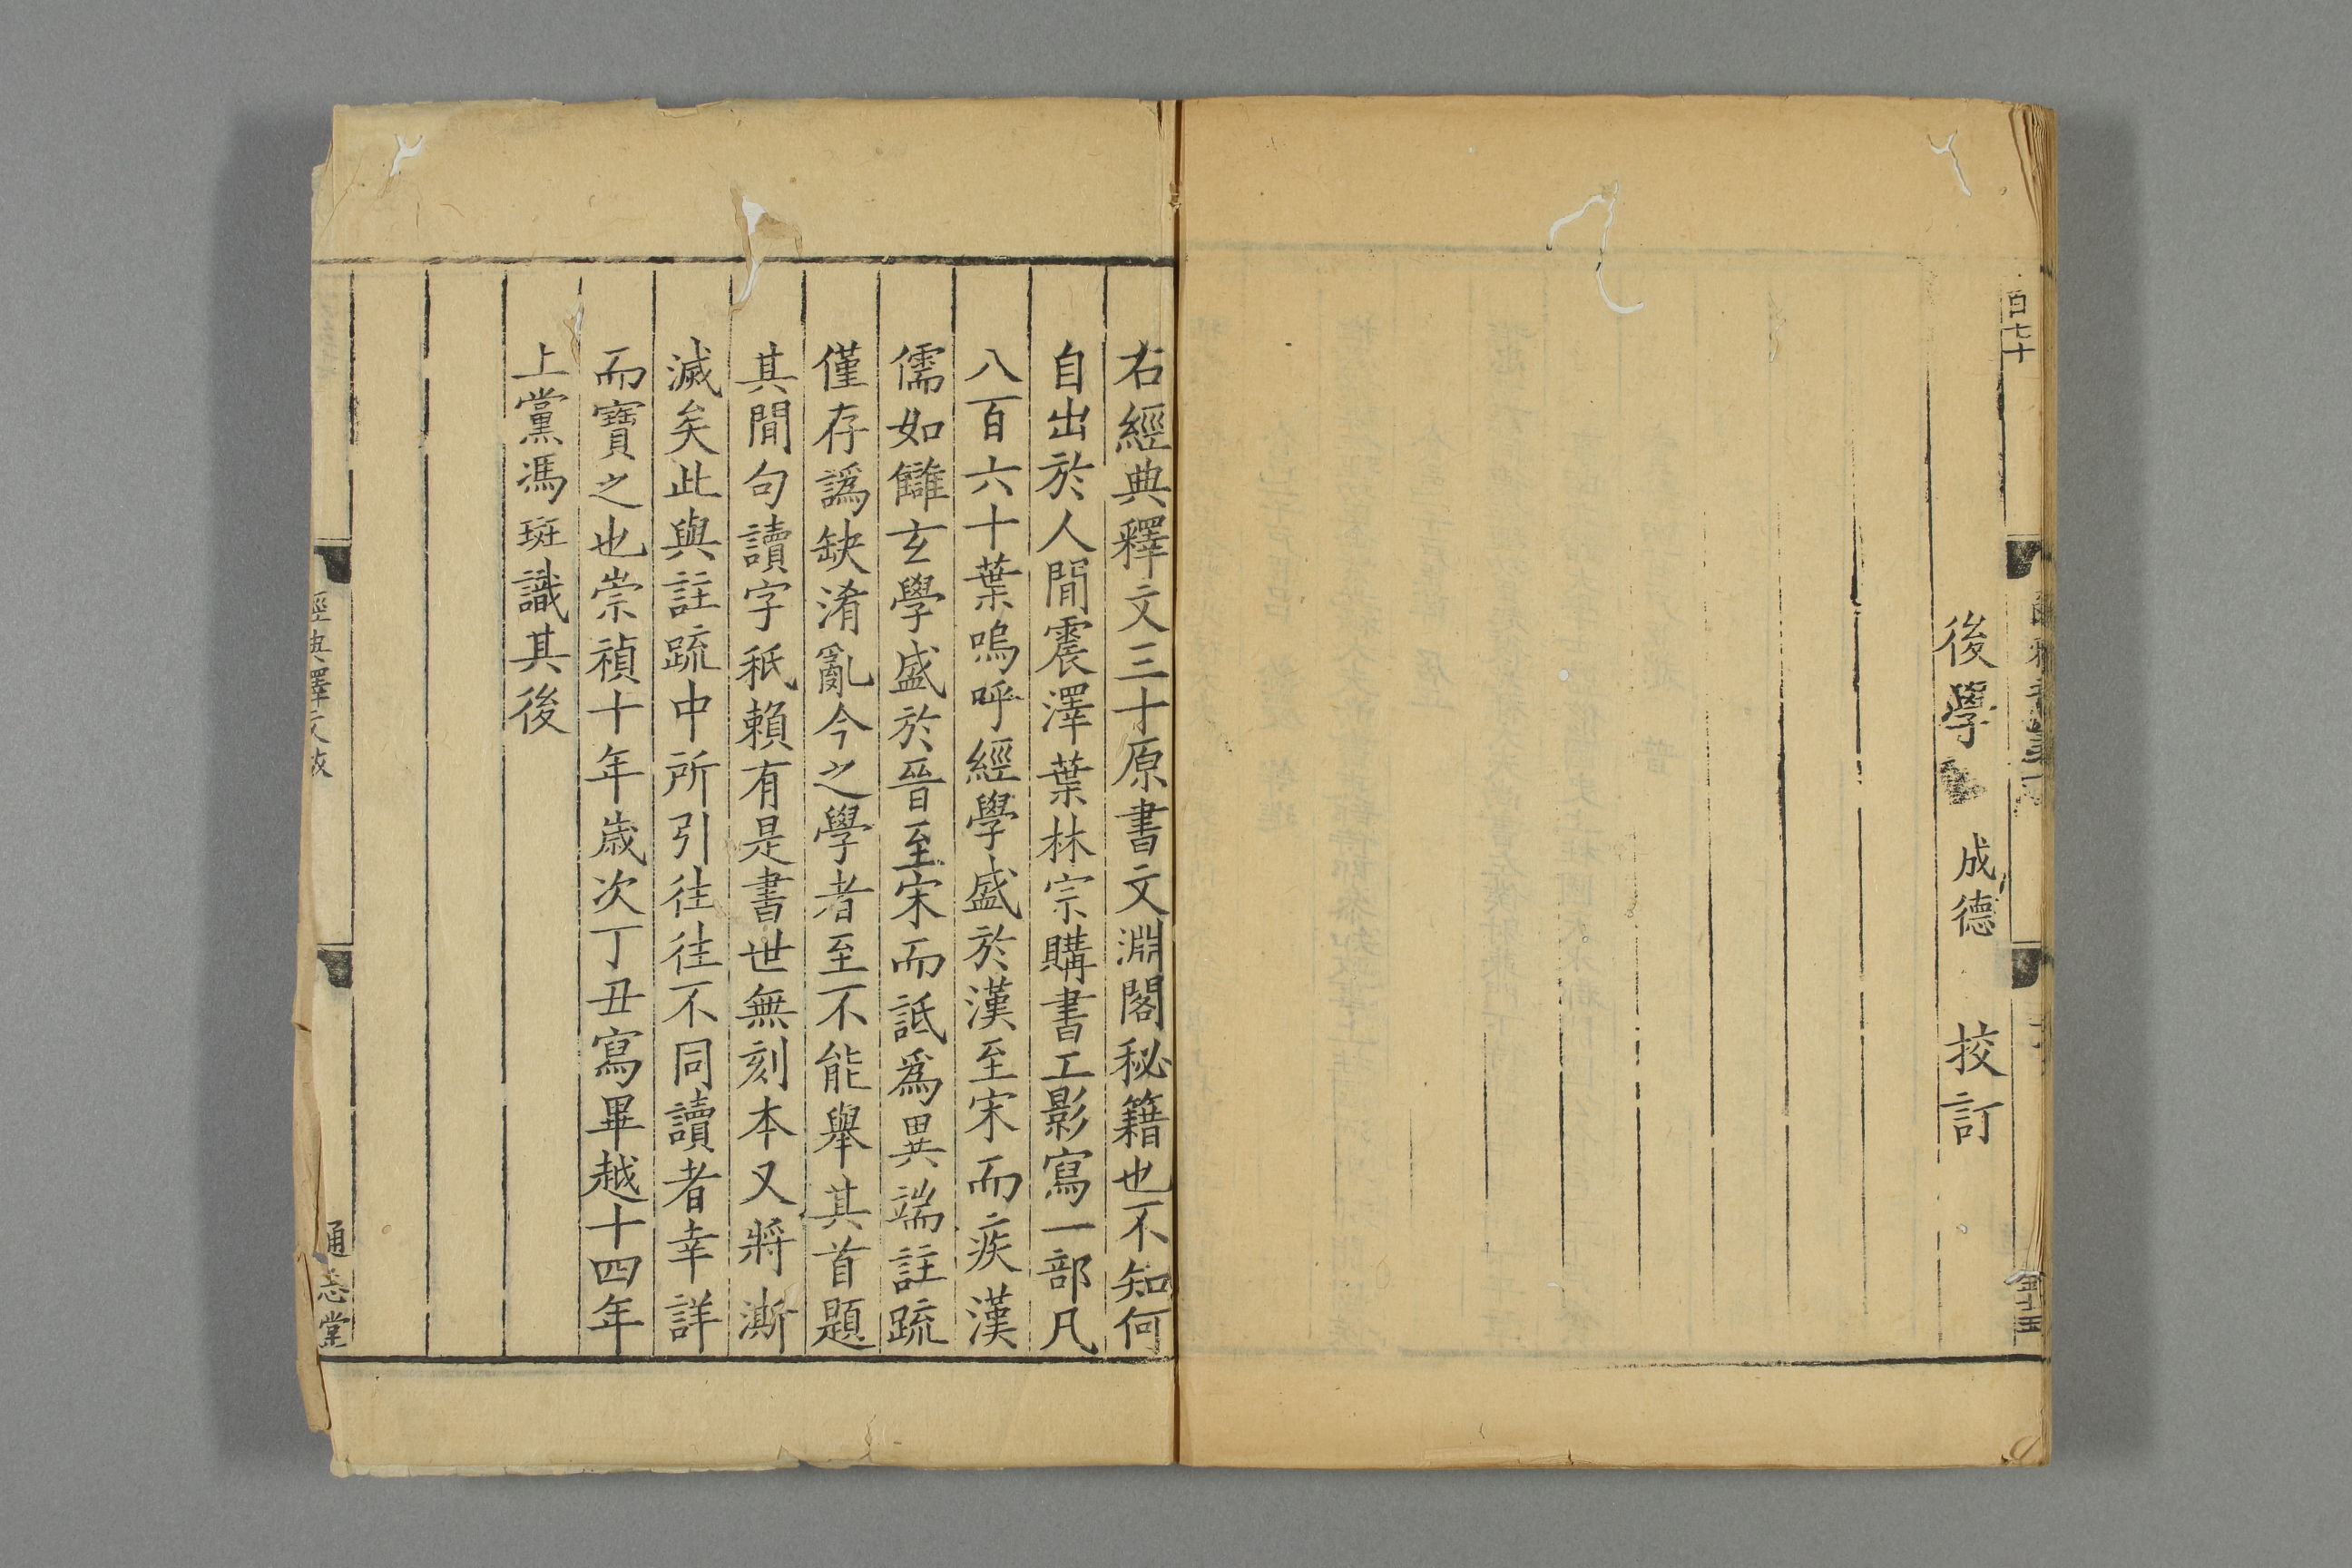 百七十
後學 成德 挍訂
右經典釋文三十原書文淵閣秘籍也不知何
自出於人閒震澤葉林宗購書工影寫一部凡
八百六十葉嗚呼經學盛於漢至宋而疾漢
儒如讎玄學盛於晉至宋而詆爲異端註疏
僅存譌缺淆亂今之學者至不能舉其首題
其閒句讀字秖賴有是書世無刻本又將漸
滅矣此與註疏中所引徃徃不同讀者幸詳
而寶之也崇禎十年歲次丁丑寫畢越十四年
上黨馮班識其後
經典釋文跋
通志堂